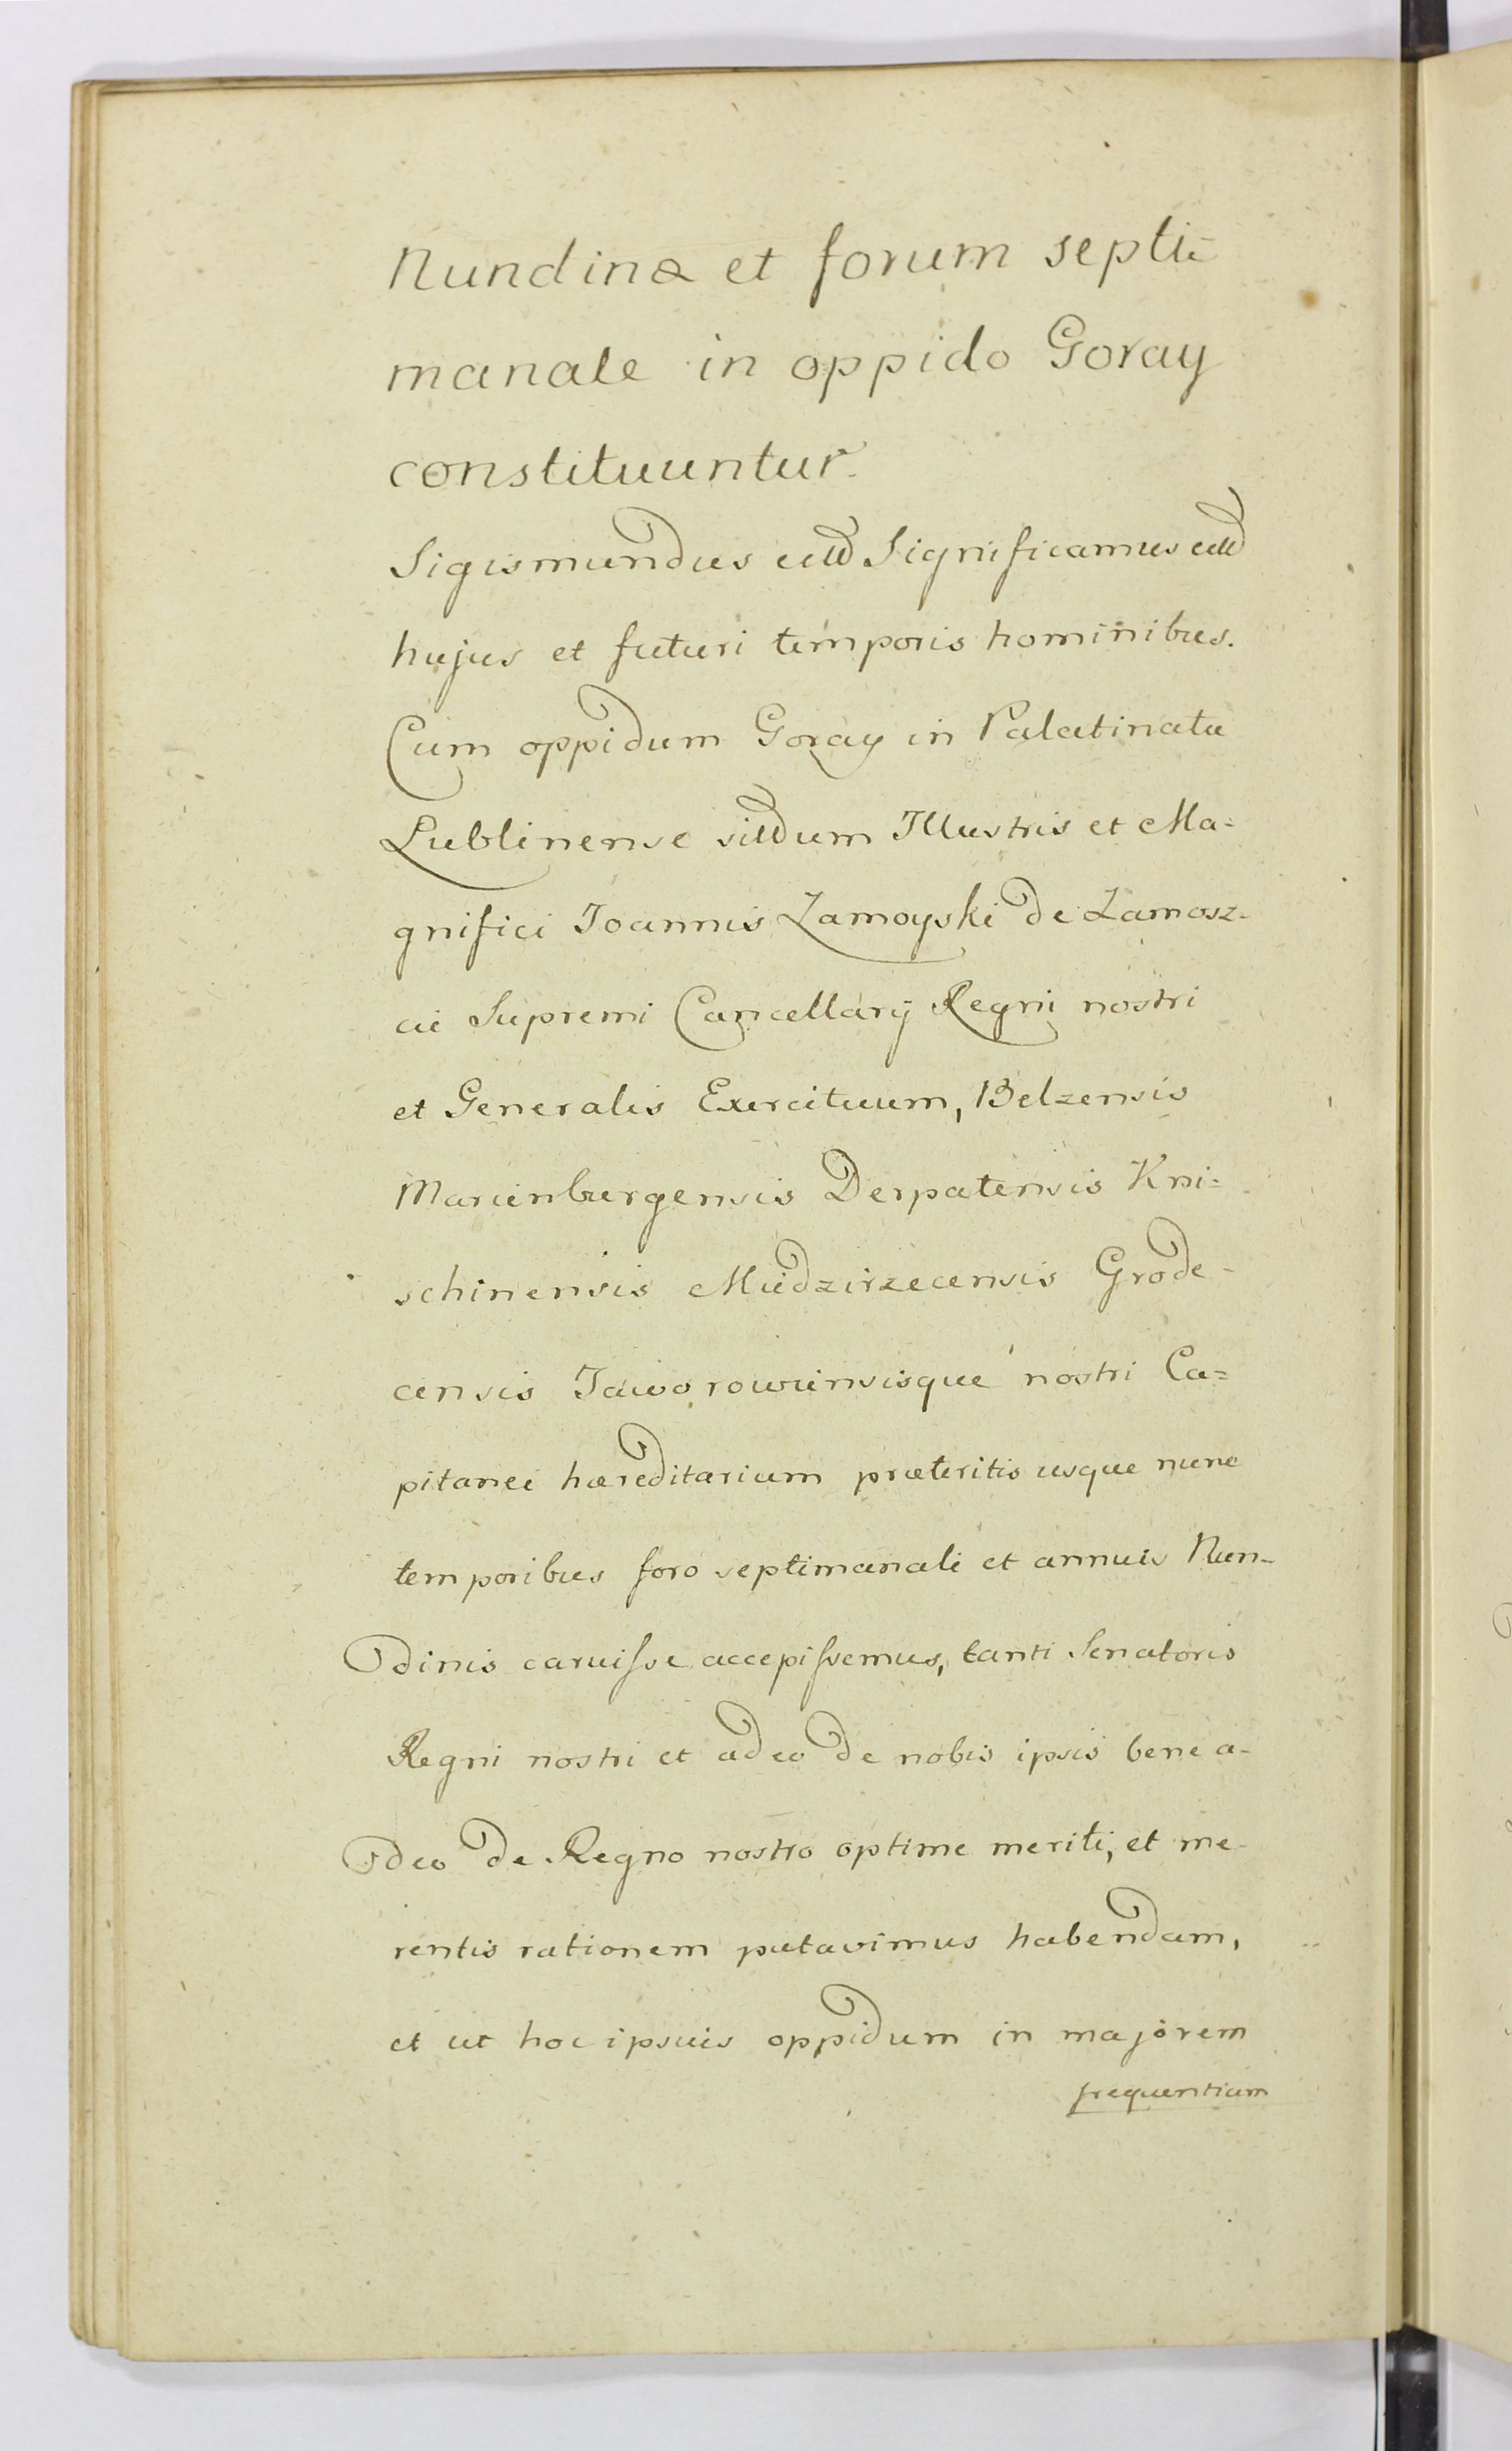 Nundinæ et forum septi-
manale in oppido Goray
constituuntur.
Sigismundus etc Significamus etc
hujus et futuri temporis hominibus.
Cum oppidum Goray in Palatinatu
Lublinense situm Illustris et Ma=
gnifici Joannis Zamoyski de Zamosz-
cie Supremi Cancellarij Regni nostri
et Generalis Exercituum, Belzensis
Marienburgensis Derpatensis Kni=
schinensis Miedzirzecensis Grode-
censis Jaworowiensisque nostri Ca=
pitanei hæreditarium præteritis usque nunc
temporibus foro septimanali et annuis Nun-
dinis caruisse accepissemus, tanti Senatoris
Regni nostri et adeo de nobis ipsis bene a-
deo de Regno nostro optime meriti, et me-
rentis rationem putavimus habendam,
et ut hoc ipsius oppidum in majorem
frequentiam